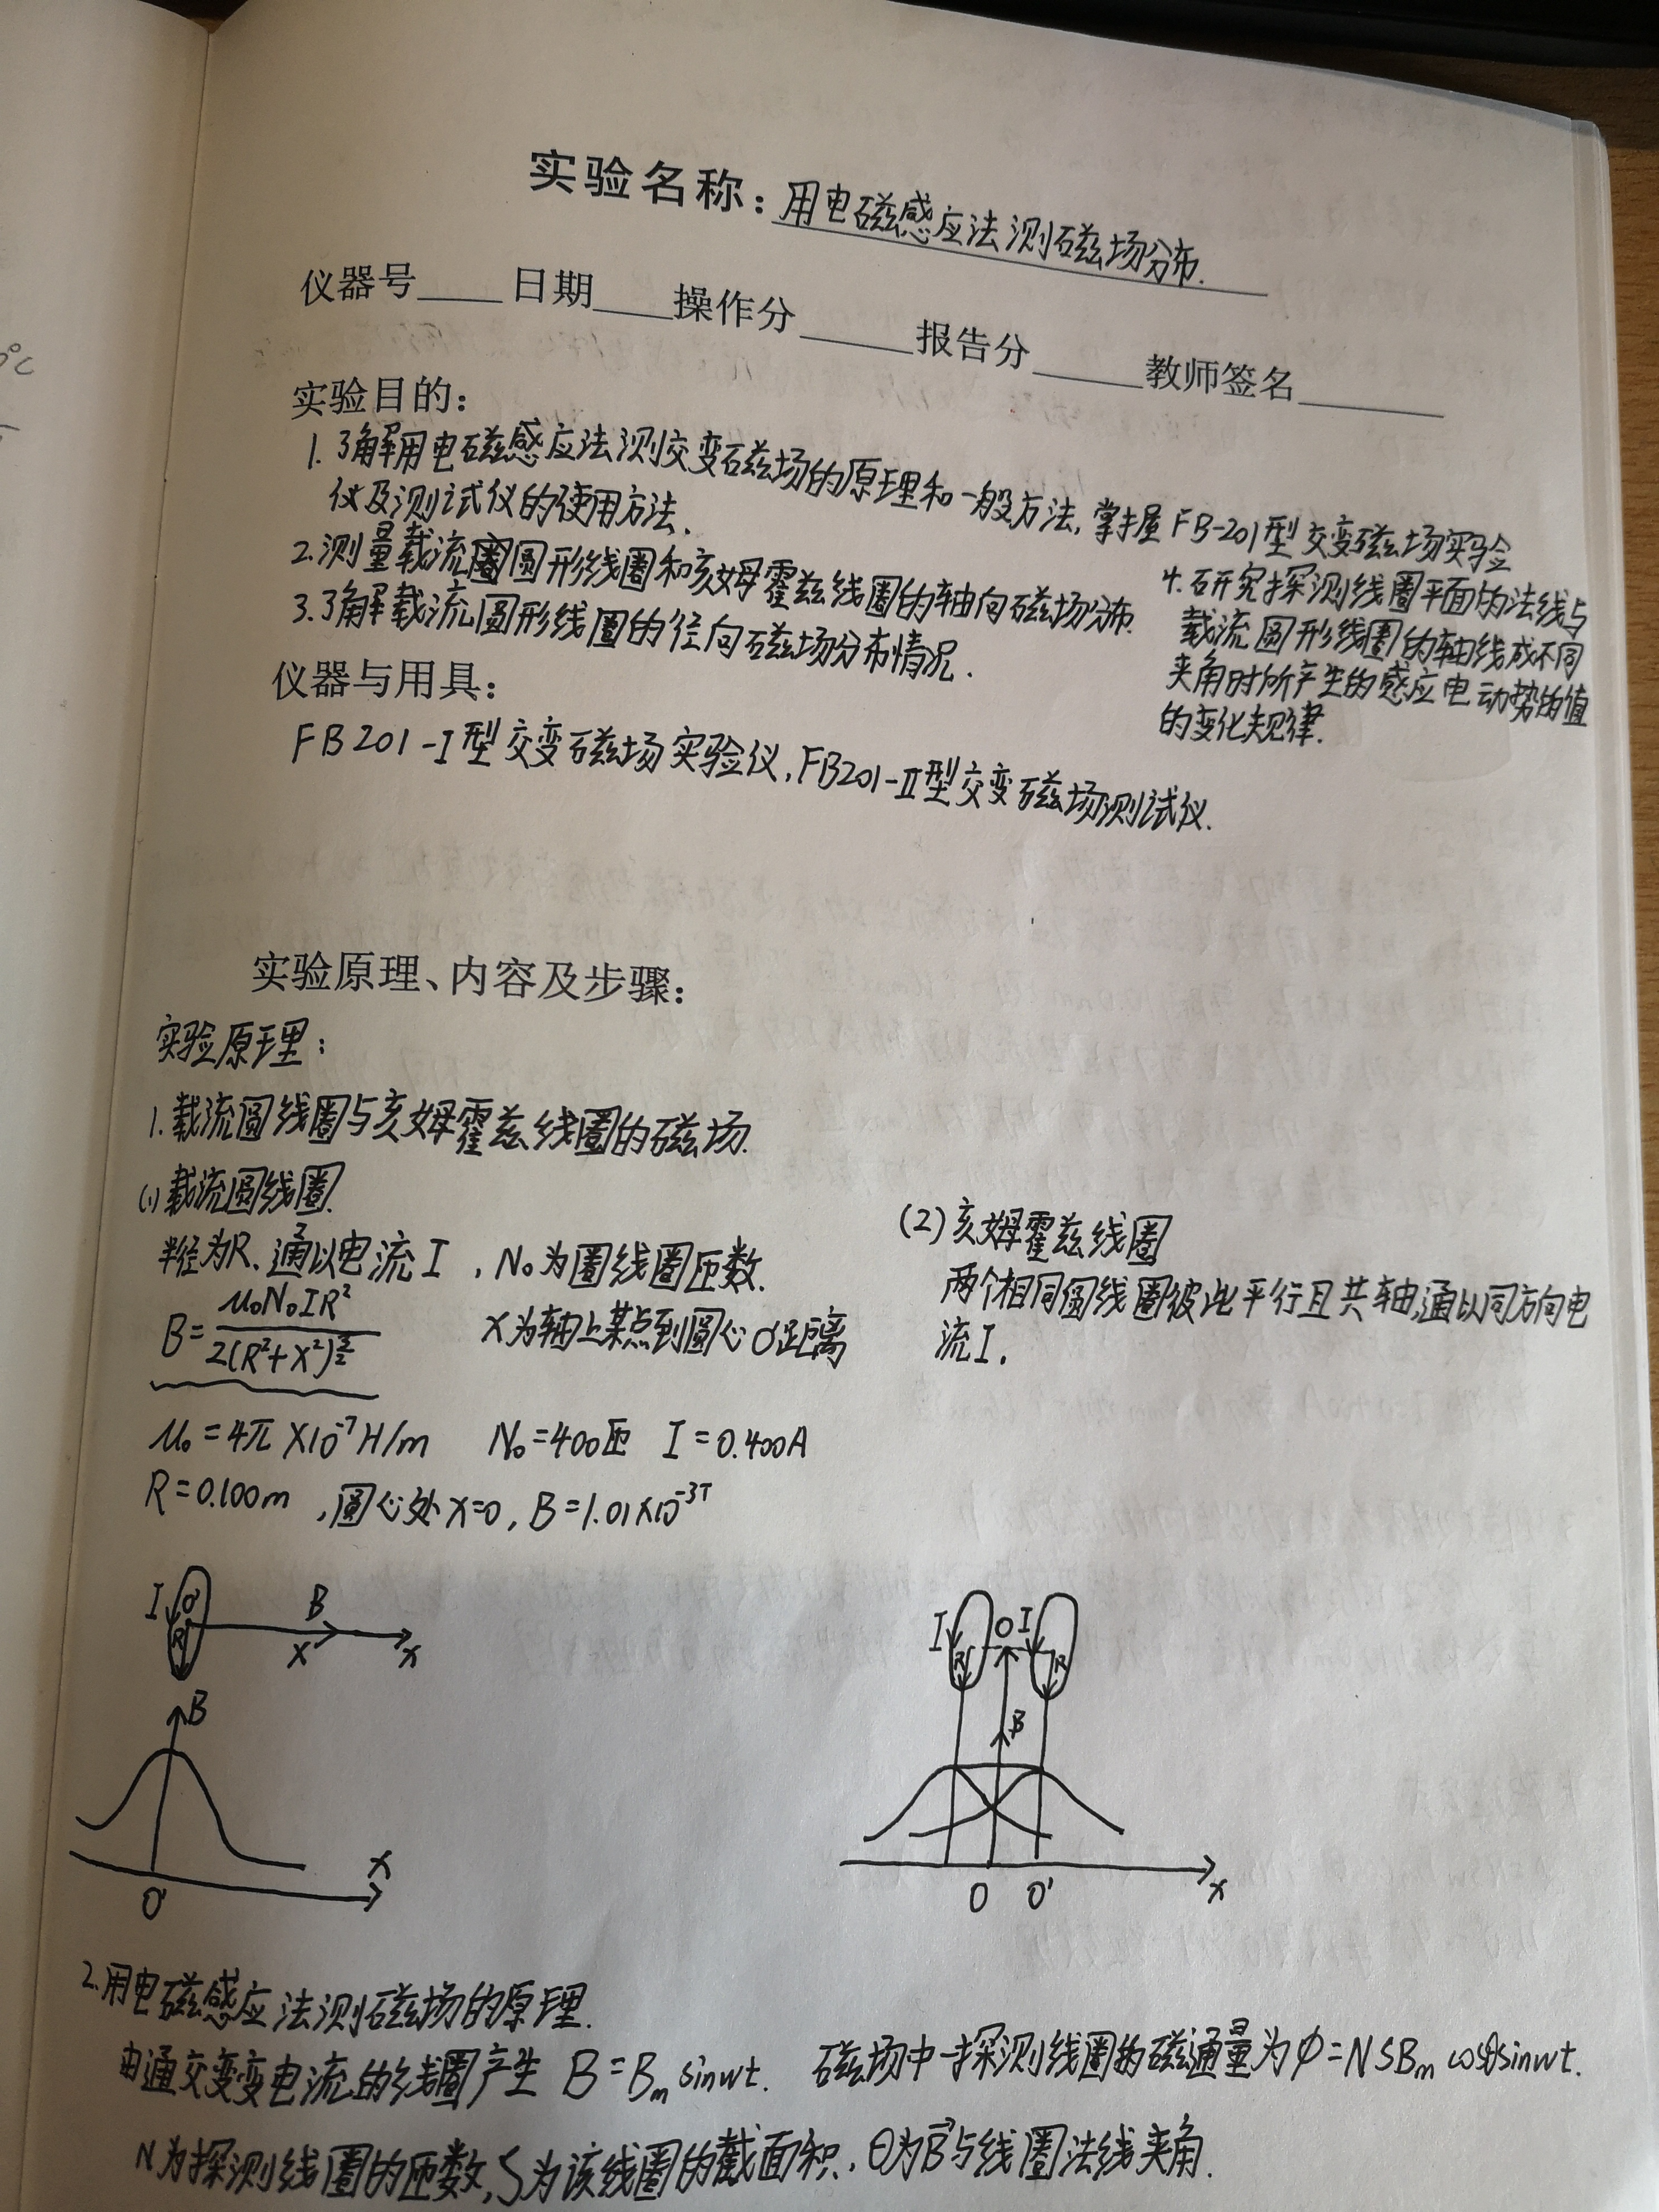 ℃
实验名称：用电磁感应法测磁场分布.
仪器号____日期____操作分____报告分____教师签名____
实验目的：
1.了解用电磁感应法测交变磁场的原理和一般方法,掌握FB-201型交变磁场实验
仪及测试仪的使用方法.
2.测量载流圆形线圈和亥姆霍兹线圈的轴向磁场分布.
3.了解载流圆形线圈的径向磁场分布情况.
4.研究探测线圈平面的法线与
载流圆形线圈的轴线成不同
夹角时所产生的感应电动势的值
的变化规律.
仪器与用具：
FB201-I型交变磁场实验仪,FB201-II型交变磁场测试仪.
实验原理、内容及步骤：
实验原理：
1.载流圆线圈与亥姆霍兹线圈的磁场.
(1)载流圆线圈.
半径为R、通以电流I，N₀为圆线圈匝数.
B=μ₀N₀IR²/2(R²+X²)^(3/2) X为轴上某点到圆心O'距离
μ₀=4π×10⁻⁷H/m N₀=400匝 I=0.400A
R=0.100m ,圆心处X=0, B=1.01×10⁻³T
(2)亥姆霍兹线圈
两个相同圆线圈彼此平行且共轴,通以同方向电
流I.
I O' R B X x
B
x
O'
I R O I R
B
O O' x
2.用电磁感应法测磁场的原理.
由通交变变电流的线圈产生 B=Bₘsinwt. 磁场中一探测线圈的磁通量为φ=NSBₘcosθsinwt.
N为探测线圈的匝数,S为该线圈的截面积,θ为B⃗与线圈法线夹角.